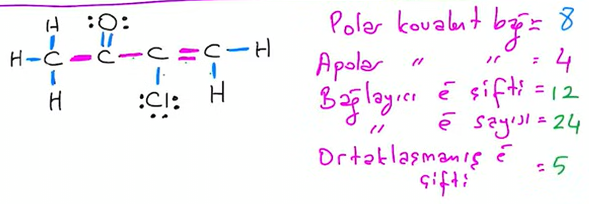 H :O:
H-C-C-C=C-H
H :Cl: H
Polar kovalent bağ = 8
Apolar " " = 4
Bağlayıcı ē çifti = 12
" ē sayısı = 24
Ortaklaşmamış ē
çifti = 5